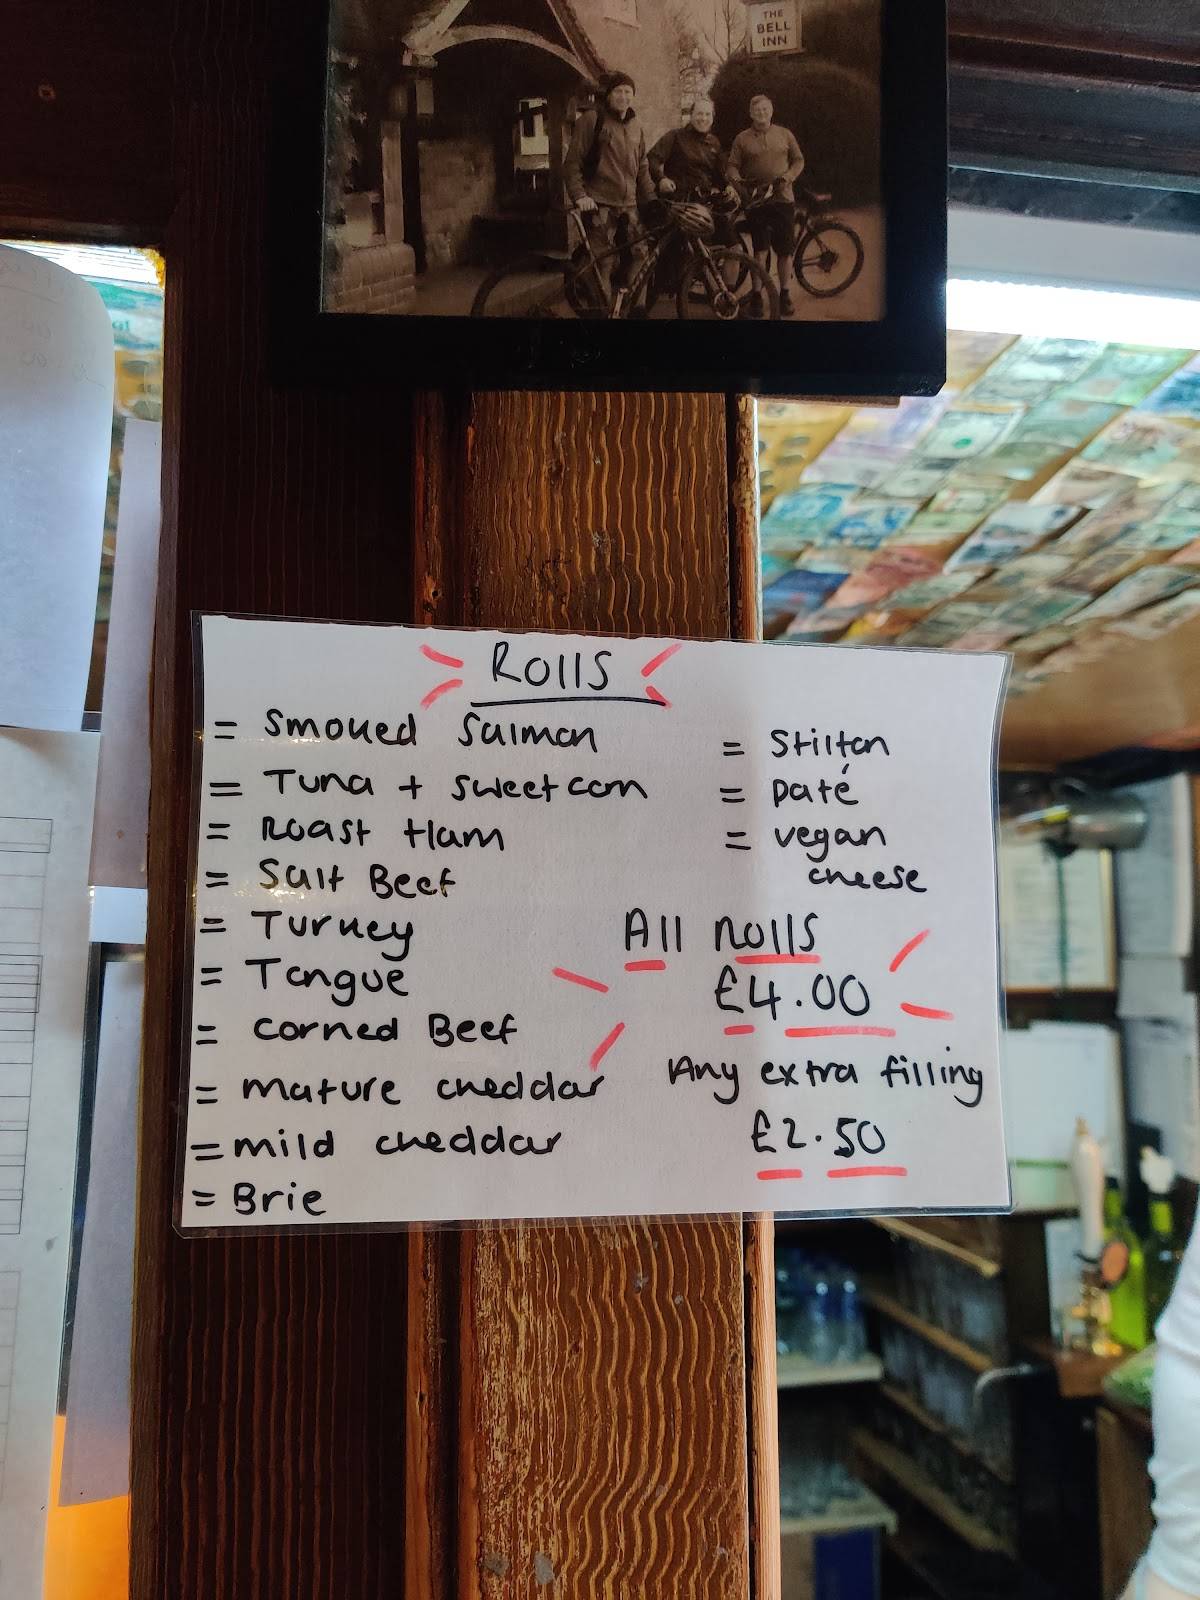 THE
BELL
INN
Rolls
= Smoked Salmon
= Tuna + Sweetcorn
= Roast Ham
= Salt Beef
= Turkey
= Tongue
= Corned Beef
= mature cheddar
= mild cheddar
= Brie
= Stilton
= Paté
= vegan
cheese
All rolls
£4.00
Any extra filling
£2.50